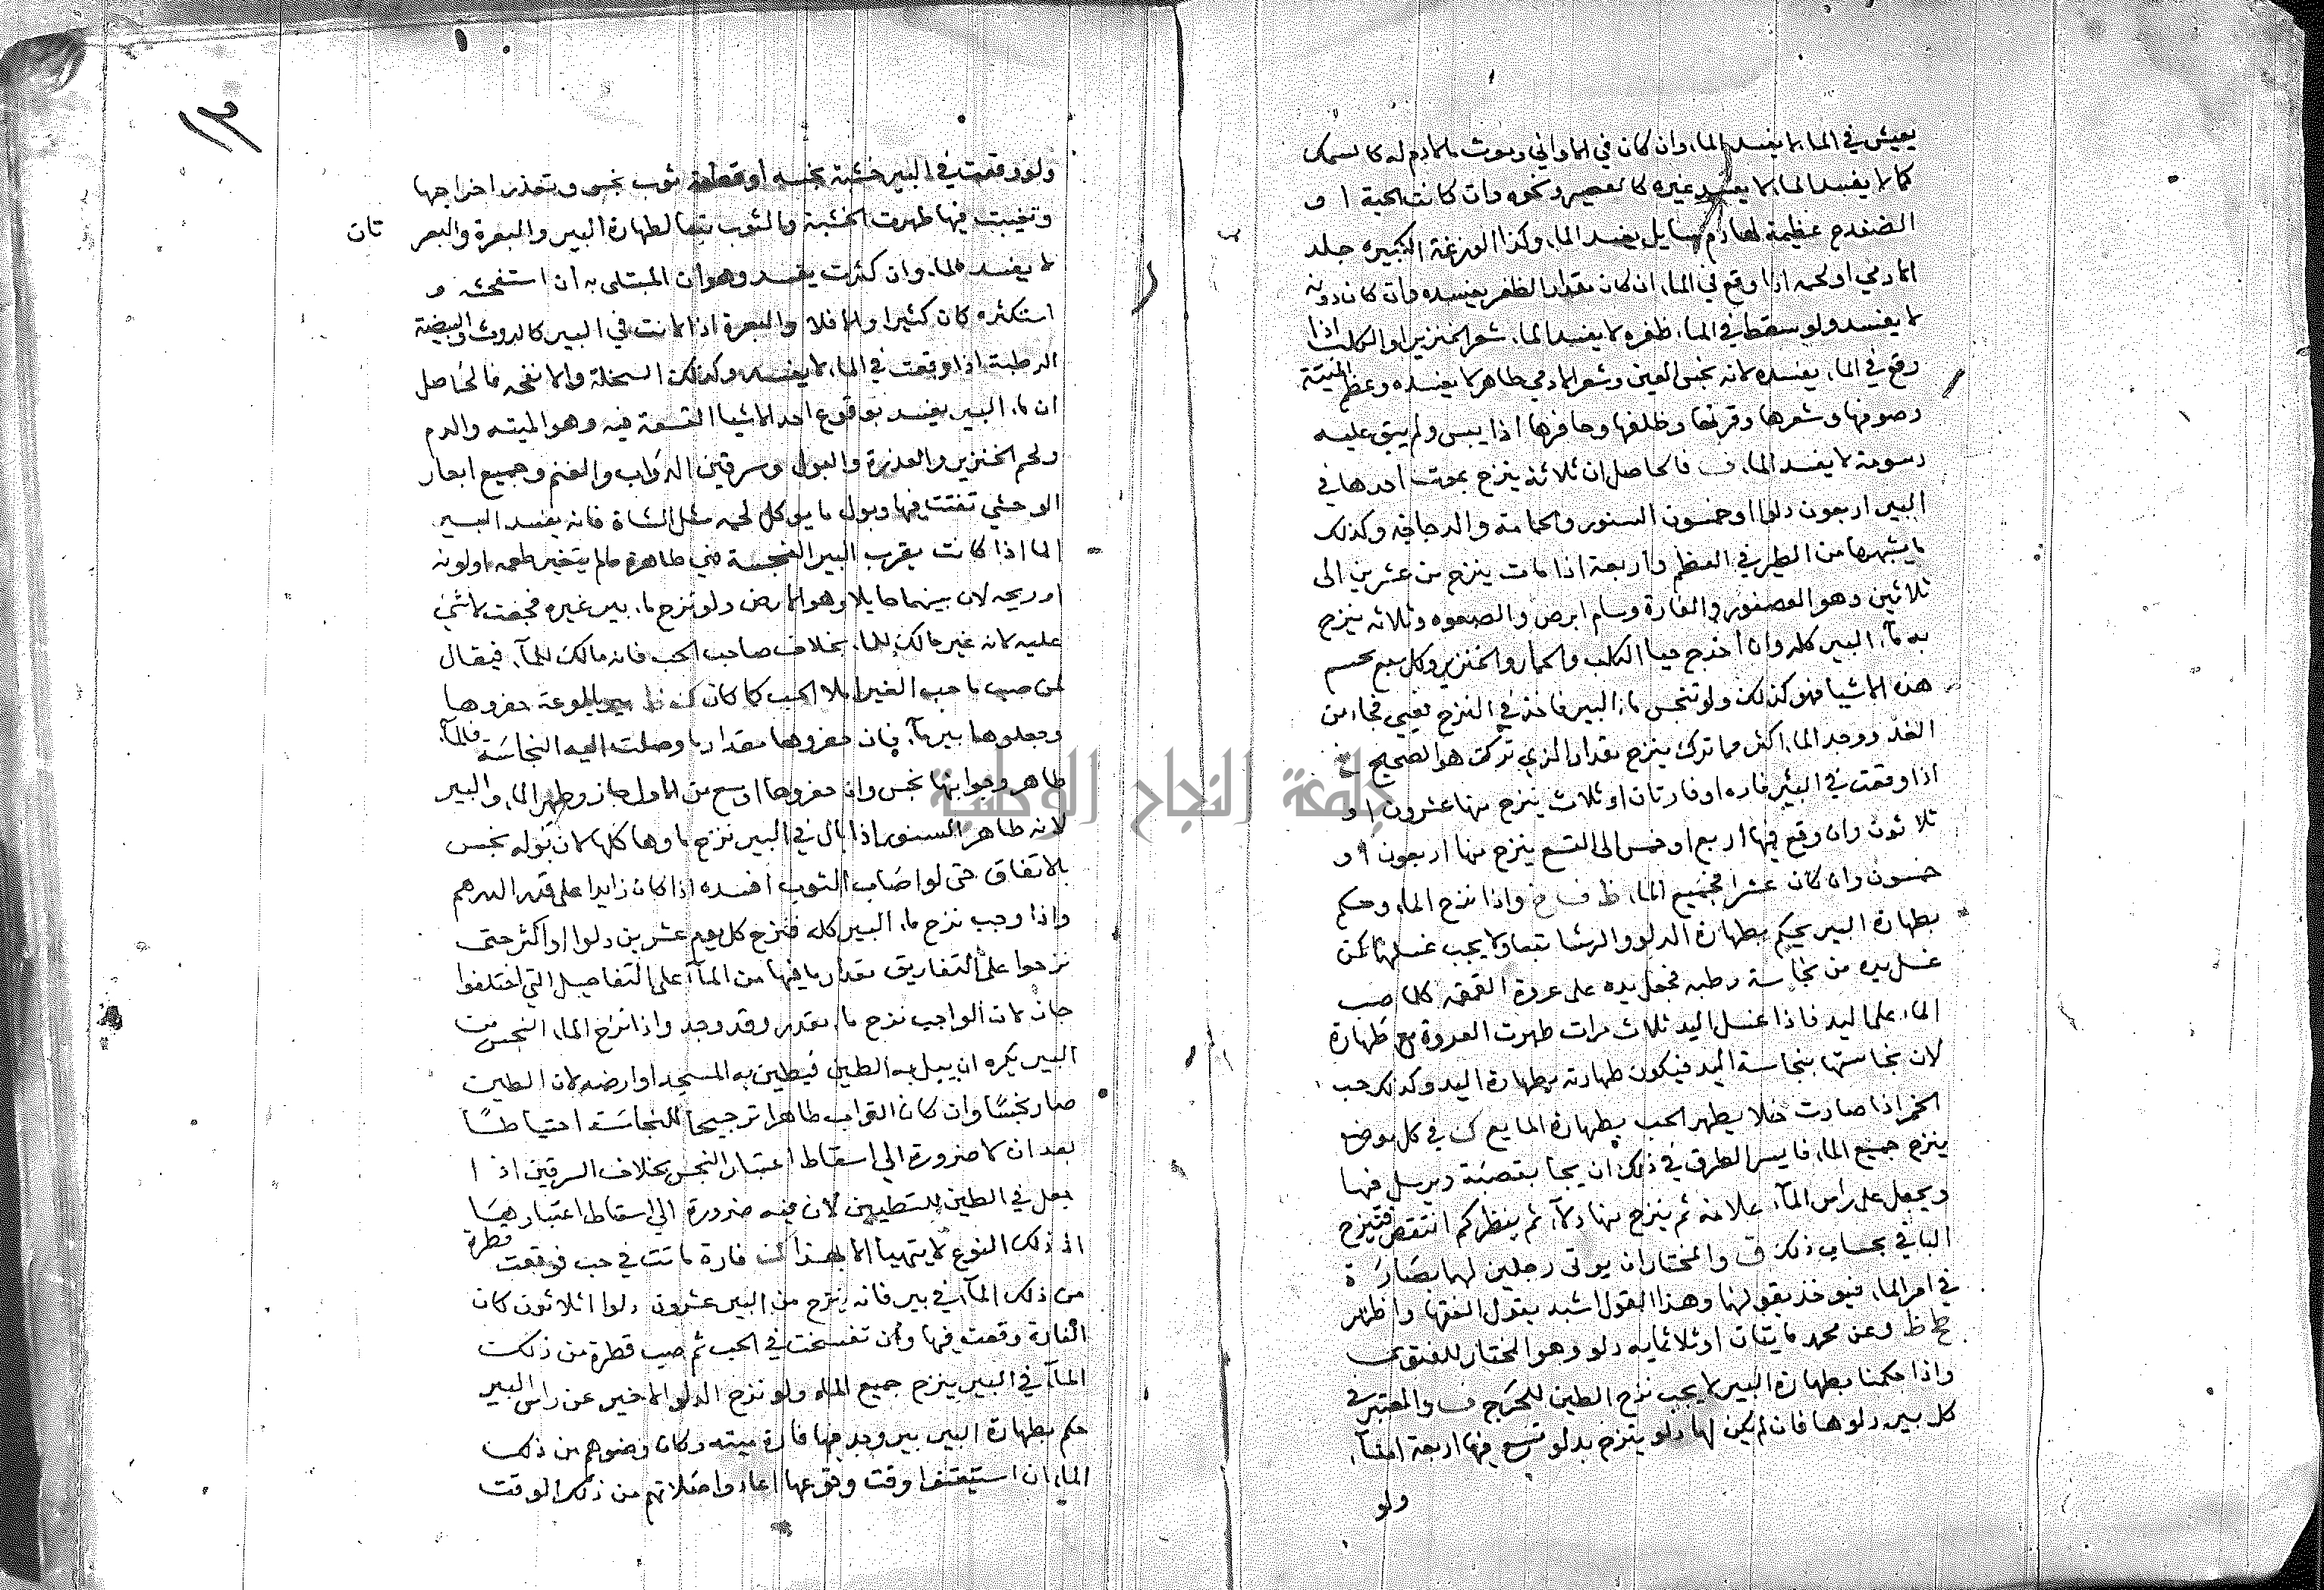 يعيش في الماء لا يفسد الماء وان كان في الاواني وموت ما لا دم له كالسمك
كما لا يفسد الماء لا يفسد غيره كالعصير ونحوه وان كانت الحية او
الضفدع عظيمة لها دم سايل يفسد الماء وكذا الوزغة الكبيرة جلد
الادمي او لحمه اذا وقع في الماء ان كان مقدار الظفر يفسده وان كان دونه
لا يفسد ولو سقط في الماء ظفره لا يفسد الماء شعر الخنزير او الكلب اذا
وقع في الماء يفسده لانه نجس العين وشعر الادمي طاهر لا يفسده وعظم الميتة
وصوفها وشعرها وقرنها وظلفها وحافرها اذا يبس ولم يبق عليه
دسومة لا يفسد الماء ف فالحاصل ان ثلاثة ينزح بموت احدها في
البير اربعون دلوا او خمسون السنور والحمامة والدجاجة وكذلك
ما يشبهها من الطير في العظم واربعة اذا ماتت ينزح من عشرين الى
ثلاثين وهو العصفور والفارة وسام ابرص والصعوه وثلاثة ينزح
به ماء البير كله وان اخرج حيا الكلب والحمار والخنزير وكل سبع
هذه الاشيا فهو كذلك ولو تنجس ماء البير فاخذ في النزح فعيى فجاء من
الغد ووجد الماء اكثر مما ترك ينزح مقدار الذي تركت هو الصحيح
اذا وقعت في البئر فاره او فارتان او ثلاث ينزح منها عشرون او
ثلاثون وان وقع فيها اربع او خمس الى التسع ينزح منها اربعون او
خمسون وان كان عشرا فجميع الماء ظ ف خ واذا نزح الماء وحكم
بطهارة البير يحكم بطهارة الدلو والرشا تبعا ولا يجب غسلهما كمن
غسل يده من نجاسة رطبه فجعل يده على عروة القمقمه كلما صب
الماء على اليد فاذا غسل اليد ثلاث مرات طهرت العروة مع طهارة
لان نجاستها بنجاسة اليد فيكون طهارته بطهارة اليد وكذلك حب
الخمر اذا صارت خلا يطهر الحب بطهارة المايع ك في كل موضع
ينزح جميع الماء فايسر الطرق في ذلك ان يجا بقصبة ويرسل فيها
ويجعل على راس الماء علامة ثم ينزح منها دلاء ثم ينظر كم انتقص فينزح
الباقي بحساب ذلك ق والمختار ان يوتى رجلين لهما بصارة
في امر الماء فيوخذ بقولهما وهذا القول اشبه بقول الفقها واظهر
ط ظ وعن محمد مايتان او ثلاثمايه دلو وهو المختار للفتوى
واذا حكمنا بطهارة البير لا يجب نزح الطين للحرج ف والمعتبر في
كل بير دلوها فان لم يكن لها دلو ينزح بدلو تسع فيها اربعة امنآ
ولو
١٣
ولو وقعت في البير خشبة نجسه او قطعة ثوب نجس وتعذر اخراجها
وتغيبت فيها طهرت الخشبة والثوب تبعا لطهارة البير والبعرة والبعر
تان
لا يفسد الماء وان كثرت يفسد وهو ان المبتلى به ان استفحشه و
استكثره كان كثيرا والا فلا والبعرة اذا لانت في البير كالروث والبيضة
الرطبة اذا وقعت في الماء لا يفسد وكذلك السخلة والانفحه فالحاصل
ان ماء البير يفسد بوقوع احد الاشيا التسعة فيه وهو الميته والدم
ولحم الخنزير والعذرة والبول وسرقين الدواب والغنم وجميع ابعار
الوحشي تفتت فيها وبول ما يوكل لحمه مثل الشاة فانه يفسد البير
الماء اذا كانت بقرب البير النجسة فهي طاهرة مالم يتغير طعمه او لونه
او ريحه لان بينهما حايلا وهو الارض ولو نزح ماء بير غيره فجفت لا شئ
عليه لانه غير مالك للماء بخلاف صاحب الحب فانه مالك للمآء فيقال
لمن صب ما حب الغير املا الحب كما كان بير بالوعة حفروها
وجعلوها بير مآء فان حفروها مقدار ما وصلت اليه النجاسة فالمآء
طاهر وجوانبها نجس وان حفروها اوسع من الاول جاز وطهر الماء والبير
لانه طاهر السنور اذا بال في البير نزح ماوها كلها لان بوله نجس
بالاتفاق حتى لو اصاب الثوب افسده اذا كان زايدا على قدر الدرهم
واذا وجب نزح ماء البير كله فنزح كل يوم عشرين دلوا او اكثر حتى
نزحوا على التفاريق مقدار ما فيها من المآء على التفاصيل التي اختلفوا
جاز لان الواجب نزح ماء مقدر وقد وجد واذا نزح الماء النجس من
البير يكره ان يبل به الطين فيطين به المسجد او ارضه لان الطين
صار نجسا وان كان التراب طاهرا ترجيحا للنجاسة احتياطا
بعد ان لا ضرورة الى اسقاط اعتبار النجس بخلاف السرقين اذا
جعل في الطين للتطيين لان فيه ضرورة الى اسقاط اعتبارها
اذ ذلك النوع لا يتهيأ الا بهذا فارة ماتت في حب فوقعت قطرة
من ذلك المآء في بير فانه ينزح من البير عشرون دلوا او ثلاثون كان
الفارة وقعت فيها وان تفسخت في الحب ثم صب قطرة من ذلك
المآء في البير ينزح جميع الماء ولو نزح الدلو الاخير عن راس البير
حكم بطهارة البير بير وجد فيها فارة ميته وكان وضوهم من ذلك
الماء ان استيقنوا وقت وقوعها اعادوا صلاتهم من ذلك الوقت
جامعة النجاح الوطنية